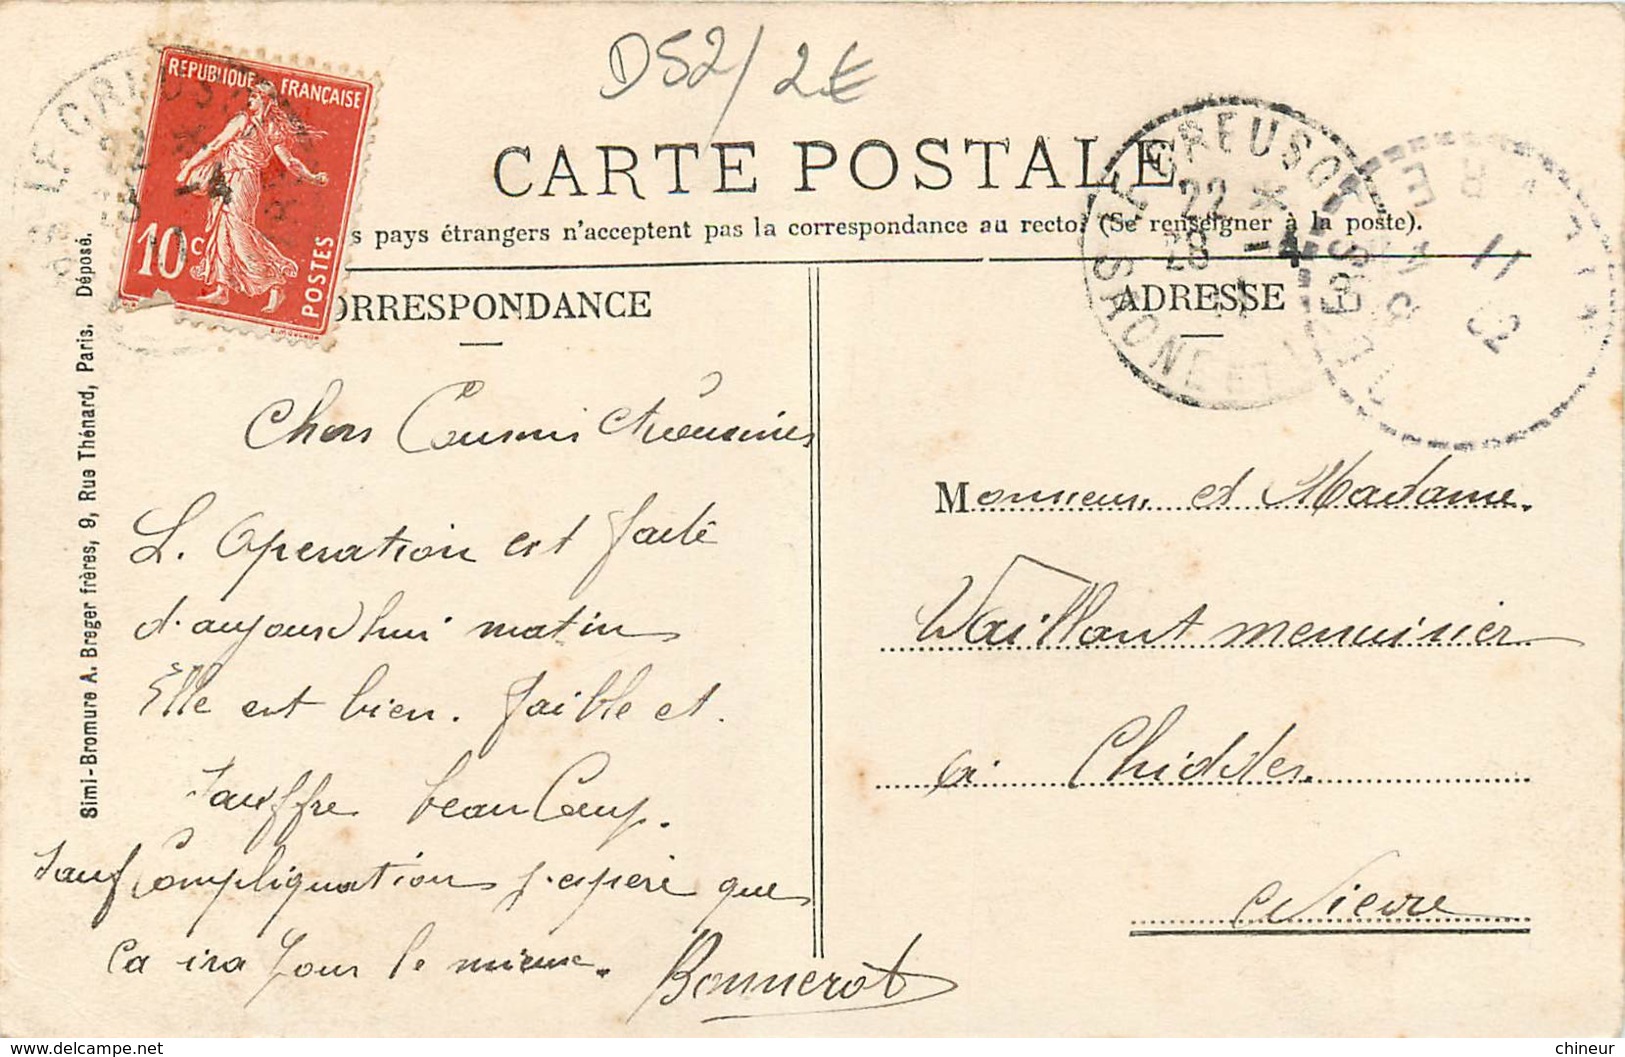 D52/2€
REPUBLIQUE FRANÇAISE
10c
POSTES
LE CREUSOT
LE CREUSOT
22 *
28 -4
SAONE ET
CARTE POSTALE
s pays étrangers n'acceptent pas la correspondance au recto. (Se renseigner à la poste).
ORRESPONDANCE
ADRESSE
Simi-Bromure A. Breger frères, 9, Rue Thénard, Paris. Déposé.
Chers Cousins et Cousines
L. Operation est faite
d'aujourd'hui matin
Elle est bien. faible et.
Sauffre beau Coup.
Sauf Compliquation j.espere que
Ca ira pour le mieux.
Bonnerot
Monsieur et Madame.
Vaillant menuisier
a. Chiddes
Nievre
chineur